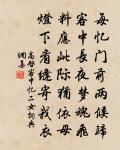 每忆门前两候归
客中长夜梦魂飞
料应此际犹依母
灯下看缝寄我衣
高启客中忆二女词典
网集